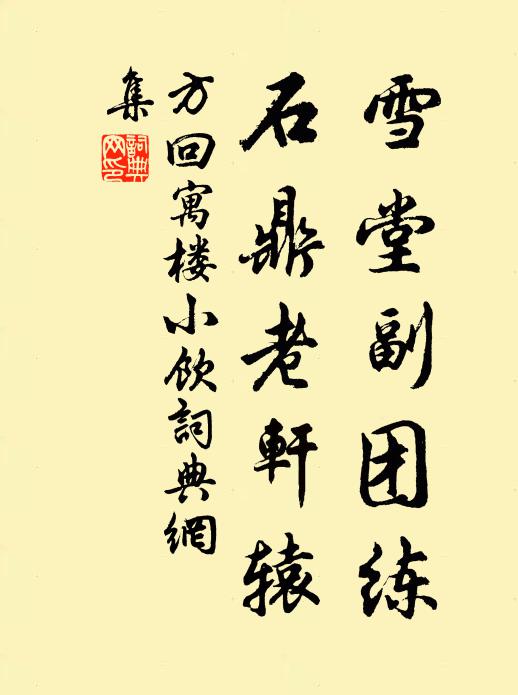 雪堂副团练
石鼎老軒辕
方回寓楼小飲詞典網
集
詞典网印